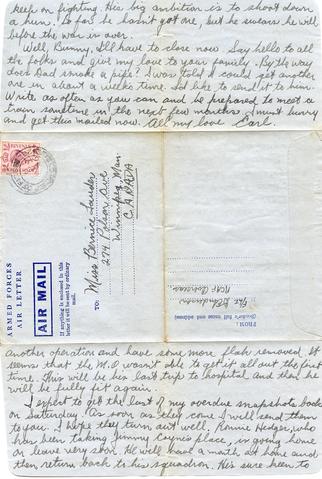 keep on fighting. His big ambition is to shoot down a
hun. So far he hasn't got one, but he swears he will
before the war is over.
Well, Bunny, I'll have to close now. Say hello to all
the folks and give my love to your family. By the way
does Dad smoke a pipe? I was told I could get another
one in about a week's time. I'd like to send it to him.
Write as often as you can and be prepared to meet a
train sometime in the next few months. I must hurry
and get this mailed now. All my love Earl.
ARMED FORCES
AIR LETTER
AIR MAIL
If anything is enclosed in this
letter it will be sent by ordinary
mail.
TO:
Miss Bernice Lauder
274 Polson Ave
Winnipeg, Man.
CANADA
FROM:
(Sender's full name and address)
RCAF Overseas.
another operation and have some more flak removed. It
seems that the M.O wasn't able to get it all out the first
time. This will be his last trip to hospital and then he
will be fully fit again.
I expect to get the last of my overdue snapshots back
on Saturday. As soon as they come I will send them
to you. I hope they turn out well. Ronnie Hedger, who
has been taking Jimmy Cayne's place, is going home
on leave very soon. He will have a month at home and
then return back to his squadron. He's sure keen to